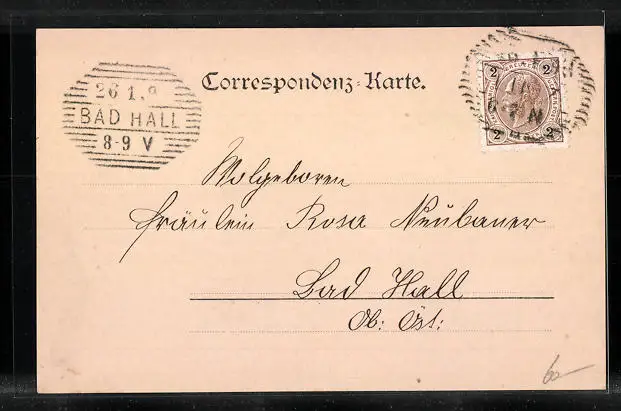 Correspondenz-Karte.
26 1.9
BAD HALL
8-9 V
2 2
2 2
Wolgeboren
Fräulein Rosa Neubauer
Bad Hall
Ob: Öst: